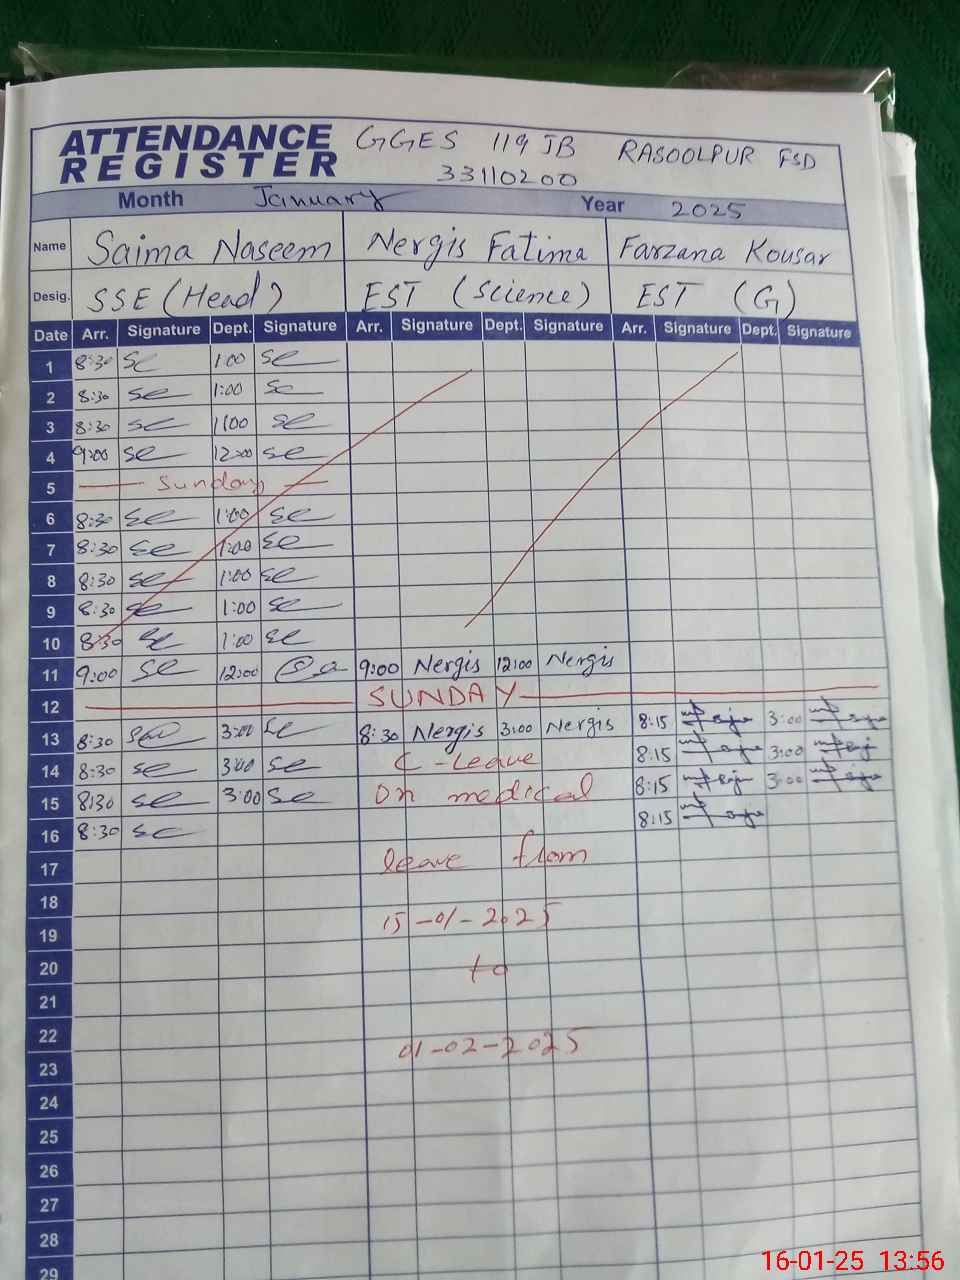 ATTENDANCE REGISTER GGES 119 JB RASOOLPUR FSD
33110200
Month January Year 2025
Name Saima Naseem Nergis Fatima Farzana Kousar
Desig. SSE (Head) EST (Science) EST (G)
Date Arr. Signature Dept. Signature Arr. Signature Dept. Signature Arr. Signature Dept. Signature
1 8:30 se 1:00 se
2 8:30 se 1:00 se
3 8:30 se 1:00 se
4 9:00 se 12:00 se
5 Sunday
6 8:30 se 1:00 se
7 8:30 se 1:00 se
8 8:30 se 1:00 se
9 8:30 se 1:00 se
10 8:30 se 1:00 se
11 9:00 se 12:00 9:00 Nergis 12:00 Nergis
12 SUNDAY
13 8:30 3:00 se 8:30 Nergis 3:00 Nergis 8:15 3:00
14 8:30 se 3:00 se C-Leave 8:15 3:00
15 8:30 se 3:00 se On medical 8:15 3:00
16 8:30 se 8:15
17 leave from
18
19 15-01-2025
20 to
21
22 01-02-2025
23
24
25
26
27
28
29
16-01-25 13:56